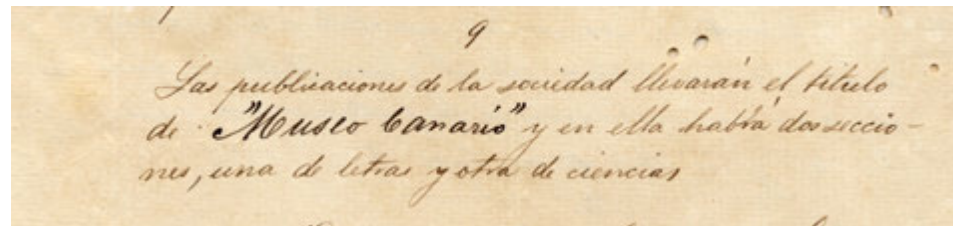 9
Las publicaciones de la sociedad llevarán el título
de "Museo Canario" y en ella habrá dos seccio-
nes, una de letras y otra de ciencias